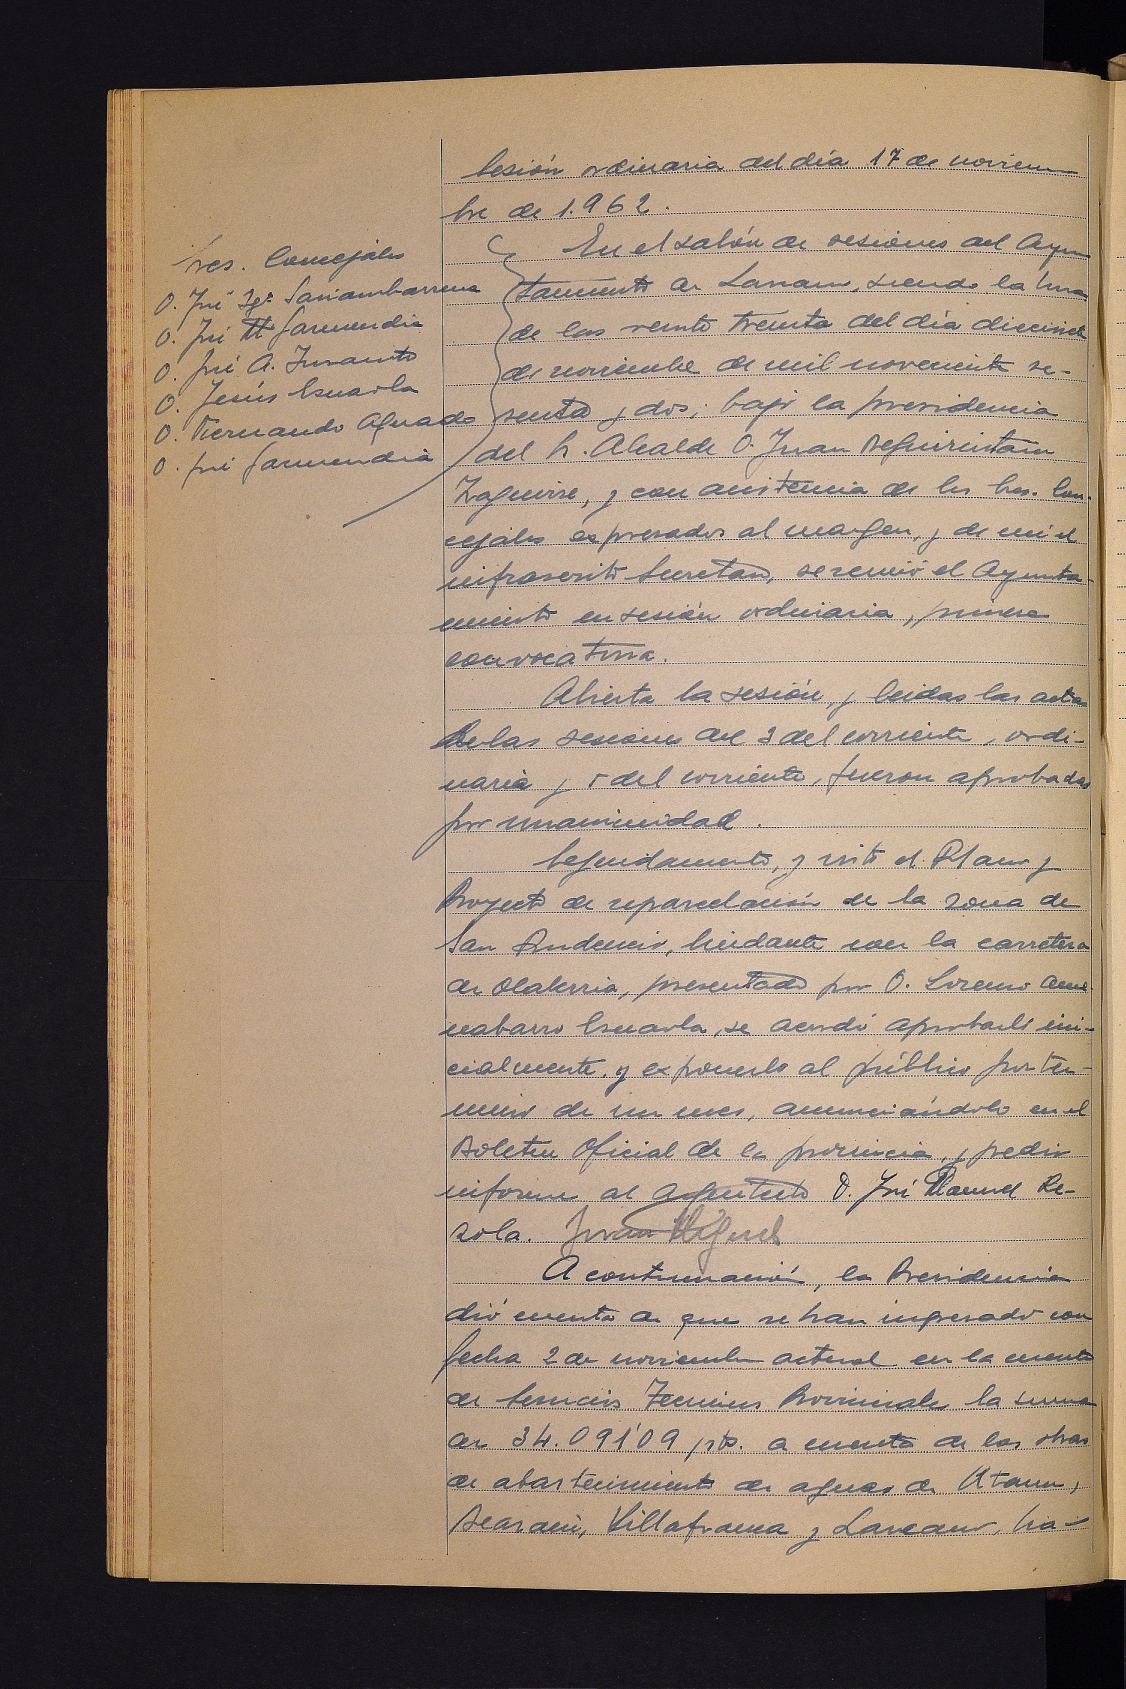 Sesión ordinaria del día 17 de noviem
bre de 1.962.
Sres. Concejales
D. José Igº Sarriambarrena
D. José Mª Garmendia
D. José A. Insausti
D. Jesús Esnaola
D. Fernando Aguado
D. José Garmendia
En el salón de sesiones del Ayun
tamiento de Lazcano, siendo la hora
de las veinte treinta del día diecisiete
de noviembre de mil noveciento se-
senta y dos; bajo la presidencia
del Sr. Alcalde D. Juan
Izaguirre, y con asistencia de los Sres. Con-
cejales expresados al margen, y de mí el
infrascrito Secretario, se reunió el Ayunta-
miento en sesión ordinaria, primera
convocatoria.
Abierta la sesión, y leidas las actas
de las sesiones del 3 del corriente, ordi-
naria y 5 del corriente, fueron aprobadas
por unanimidad.
Seguidamente, y visto el Plano y
Proyecto de reparcelación de la zona de
San Prudencio, lindante con la carretera
de Olaberria, presentado por D. Lorenzo Ame-
nabarro Esnaola, se acordó aprobarlo ini-
cialmente, y exponerlo al público por tér-
mino de un mes, anunciándolo en el
Boletin Oficial de la provincia, y pedir
informe al Arquitecto D. José Manuel Re-
zola. Juan Miguel
A continuación, la Presidencia
dió cuenta de que se han ingresado con
fecha 2 de noviembre actual en la cuenta
de Servicios Técnicos Provinciales la suma
de 34.091'09 pts. a cuenta de las obras
de abastecimiento de aguas de Ataun,
Beasain, Villafranca y Lazcano, ha-